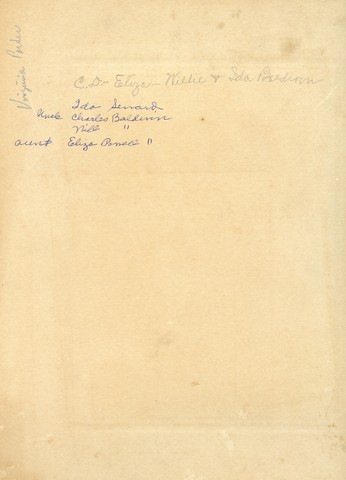 Virginia Porter
C.D. - Eliza - Willie & Ida Baldwin
Ida Seward
Uncle Charles Baldwin
Will "
aunt Eliza Powell "